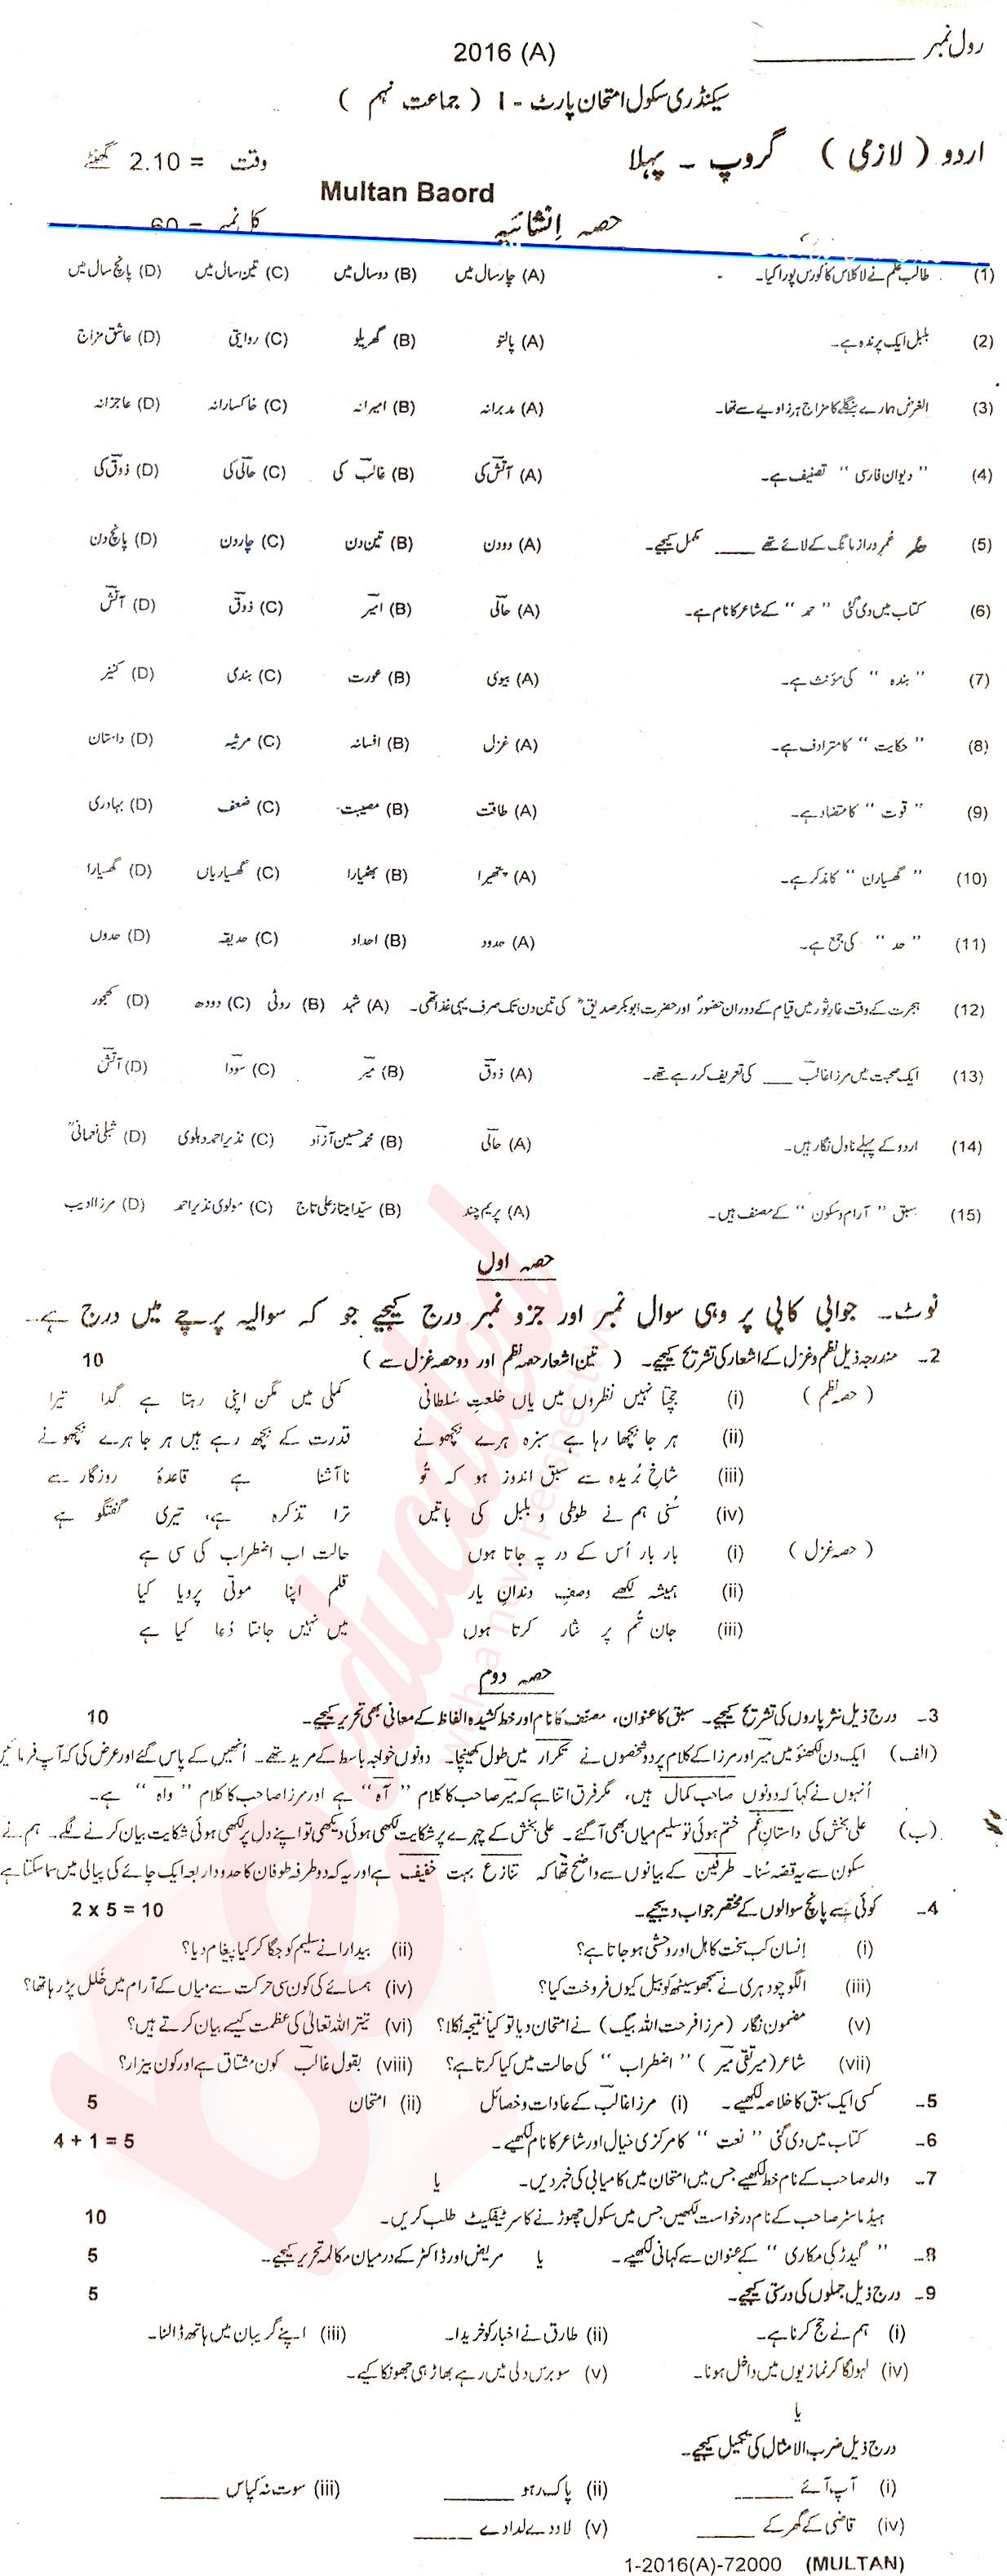 رول نمبر ____________
2016 (A)
سیکنڈری سکول امتحان پارٹ - I ( جماعت نہم )
اردو ( لازمی ) گروپ - پہلا وقت = 2.10 گھنٹے
Multan Baord
حصہ اِنشائیہ کل نمبر = 60
(1) طالب علم نے لا کلاس کا کورس پورا کیا۔ (A) چار سال میں (B) دو سال میں (C) تین سال میں (D) پانچ سال میں
(2) بلبل ایک پرندہ ہے۔ (A) پالتو (B) گھریلو (C) روایتی (D) عاشق مزاج
(3) الغرض ہمارے بنگلے کا مزاج ہر زاویے سے تھا۔ (A) مدبرانہ (B) امیرانہ (C) خاکسارانہ (D) عاجزانہ
(4) ’’ دیوان فارسی ‘‘ تصنیف ہے۔ (A) آتش کی (B) غالب کی (C) حالی کی (D) ذوق کی
(5) ع عُمرِ دراز مانگ کے لائے تھے ____ مکمل کیجیے۔ (A) دو دن (B) تین دن (C) چار دن (D) پانچ دن
(6) کتاب میں دی گئی ’’ حمد ‘‘ کے شاعر کا نام ہے۔ (A) حالی (B) امیر (C) ذوق (D) آتش
(7) ’’ بندہ ‘‘ کی مؤنث ہے۔ (A) بیوی (B) عورت (C) بندی (D) کنیز
(8) ’’ حکایت ‘‘ کا مترادف ہے۔ (A) غزل (B) افسانہ (C) مرثیہ (D) داستان
(9) ’’ قوت ‘‘ کا متضاد ہے۔ (A) طاقت (B) مصیبت (C) ضعف (D) بہادری
(10) ’’ گھسیارن ‘‘ کا مذکر ہے۔ (A) پتھیرا (B) بھٹیارا (C) گھسیاریاں (D) گھسیارا
(11) ’’ حد ‘‘ کی جمع ہے۔ (A) حدود (B) احداد (C) حدیقہ (D) حدوں
(12) ہجرت کے وقت غارِ ثور میں قیام کے دوران حضورؐ اور حضرت ابوبکر صدیقؓ کی تین دن تک صرف یہی غذا تھی۔ (A) شہد (B) روٹی (C) دودھ (D) کھجور
(13) ایک صحبت میں مرزا غالب ____ کی تعریف کر رہے تھے۔ (A) ذوق (B) میر (C) سودا (D) آتش
(14) اردو کے پہلے ناول نگار ہیں۔ (A) حالی (B) محمد حسین آزاد (C) نذیر احمد دہلوی (D) شبلی نعمانیؒ
(15) سبق ’’ آرام و سکون ‘‘ کے مصنف ہیں۔ (A) پریم چند (B) سیّد امتیاز علی تاج (C) مولوی نذیر احمد (D) مرزا ادیب
حصہ اول
نوٹ۔ جوابی کاپی پر وہی سوال نمبر اور جزو نمبر درج کیجیے جو کہ سوالیہ پرچے میں درج ہے۔
2۔ مندرجہ ذیل نظم و غزل کے اشعار کی تشریح کیجیے۔ ( تین اشعار حصہ نظم اور دو حصہ غزل سے ) 10
( حصہ نظم ) (i) جچتا نہیں نظروں میں یاں خلعتِ سُلطانی کملی میں مگن اپنی رہتا ہے گدا تیرا
(ii) ہر جا بچھا رہا ہے سبزہ ہرے بچھونے قدرت کے بچھ رہے ہیں ہر جا ہرے بچھونے
(iii) شاخِ بُریدہ سے سبق اندوز ہو کہ تُو ناآشنا ہے قاعدۂ روزگار سے
(iv) سُنی ہم نے طوطی و بلبل کی باتیں ترا تذکرہ ہے، تیری گفتگو ہے
( حصہ غزل ) (i) بار بار اُس کے در پہ جاتا ہوں حالت اب اضطراب کی سی ہے
(ii) ہمیشہ لکھے وصفِ دندانِ یار قلم اپنا موتی پرویا کیا
(iii) جان تُم پر نثار کرتا ہوں میں نہیں جانتا دُعا کیا ہے
حصہ دوم
3۔ درج ذیل نثر پاروں کی تشریح کیجیے۔ سبق کا عنوان، مصنف کا نام اور خط کشیدہ الفاظ کے معانی بھی تحریر کیجیے۔ 10
(الف) ایک دن لکھنؤ میں میر اور مرزا کے کلام پر دو شخصوں نے تکرار میں طول کھینچا۔ دونوں خواجہ باسط کے مرید تھے۔ اُنھیں کے پاس گئے اور عرض کی کہ آپ فرمائیں
اُنہوں نے کہا کہ دونوں صاحب کمال ہیں، مگر فرق اتنا ہے کہ میر صاحب کا کلام ’’ آہ ‘‘ ہے اور مرزا صاحب کا کلام ’’ واہ ‘‘ ہے۔
(ب) علی بخش کی داستانِ غم ختم ہوئی تو سلیم میاں بھی آ گئے۔ علی بخش کے چہرے پر شکایت لکھی ہوئی دیکھی تو اپنے دل پر لکھی ہوئی شکایت بیان کرنے لگے۔ ہم نے
سکون سے یہ قصہ سُنا۔ طرفین کے بیانوں سے واضح تھا کہ تنازع بہت خفیف ہے اور یہ کہ دو طرفہ طوفان کا حدود اربعہ ایک چائے کی پیالی میں سما سکتا ہے
4۔ کوئی سے پانچ سوالوں کے مختصر جواب دیجیے۔ 2 x 5 = 10
(i) اِنسان کب سخت کاہل اور وحشی ہو جاتا ہے؟ (ii) بیدارا نے سلیم کو جگا کر کیا پیغام دیا؟
(iii) الگو چودہری نے سمجھو سیٹھ کو بیل کیوں فروخت کیا؟ (iv) ہمسائے کی کون سی حرکت سے میاں کے آرام میں خلل پڑ رہا تھا؟
(v) مضمون نگار (مرزا فرحت اللہ بیگ) نے امتحان دیا تو کیا نتیجہ نکلا؟ (vi) تیتر اللہ تعالیٰ کی عظمت کیسے بیان کرتے ہیں؟
(vii) شاعر (میر تقی میر) ’’ اضطراب ‘‘ کی حالت میں کیا کرتا ہے؟ (viii) بقول غالب کون مشتاق ہے اور کون بیزار؟
5۔ کسی ایک سبق کا خلاصہ لکھیے۔ (i) مرزا غالب کے عادات و خصائل (ii) امتحان 5
6۔ کتاب میں دی گئی ’’ نعت ‘‘ کا مرکزی خیال اور شاعر کا نام لکھیے۔ 4 + 1 = 5
7۔ والد صاحب کے نام خط لکھیے جس میں امتحان میں کامیابی کی خبر دیں۔ یا
ہیڈ ماسٹر صاحب کے نام درخواست لکھیں جس میں سکول چھوڑنے کا سرٹیفکیٹ طلب کریں۔ 10
8۔ ’’ گیدڑ کی مکاری ‘‘ کے عنوان سے کہانی لکھیے۔ یا مریض اور ڈاکٹر کے درمیان مکالمہ تحریر کیجیے۔ 5
9۔ درج ذیل جملوں کی درستی کیجیے۔ 5
(i) ہم نے حج کرنا ہے۔ (ii) طارق نے اخبار کو خریدا۔ (iii) اپنے گریبان میں ہاتھ ڈالنا۔
(iv) لہو لگا کر نمازیوں میں داخل ہونا۔ (v) سو برس دلی میں رہے بھاڑ ہی جھونکا کیے۔
یا
درج ذیل ضرب الامثال کی تکمیل کیجیے۔
(i) آپ آئے ______ (ii) پاک رہو ______ (iii) سوت نہ کپاس ______
(iv) قاضی کے گھر کے ______ (v) لا دے لدا دے ______
1-2016(A)-72000 (MULTAN)